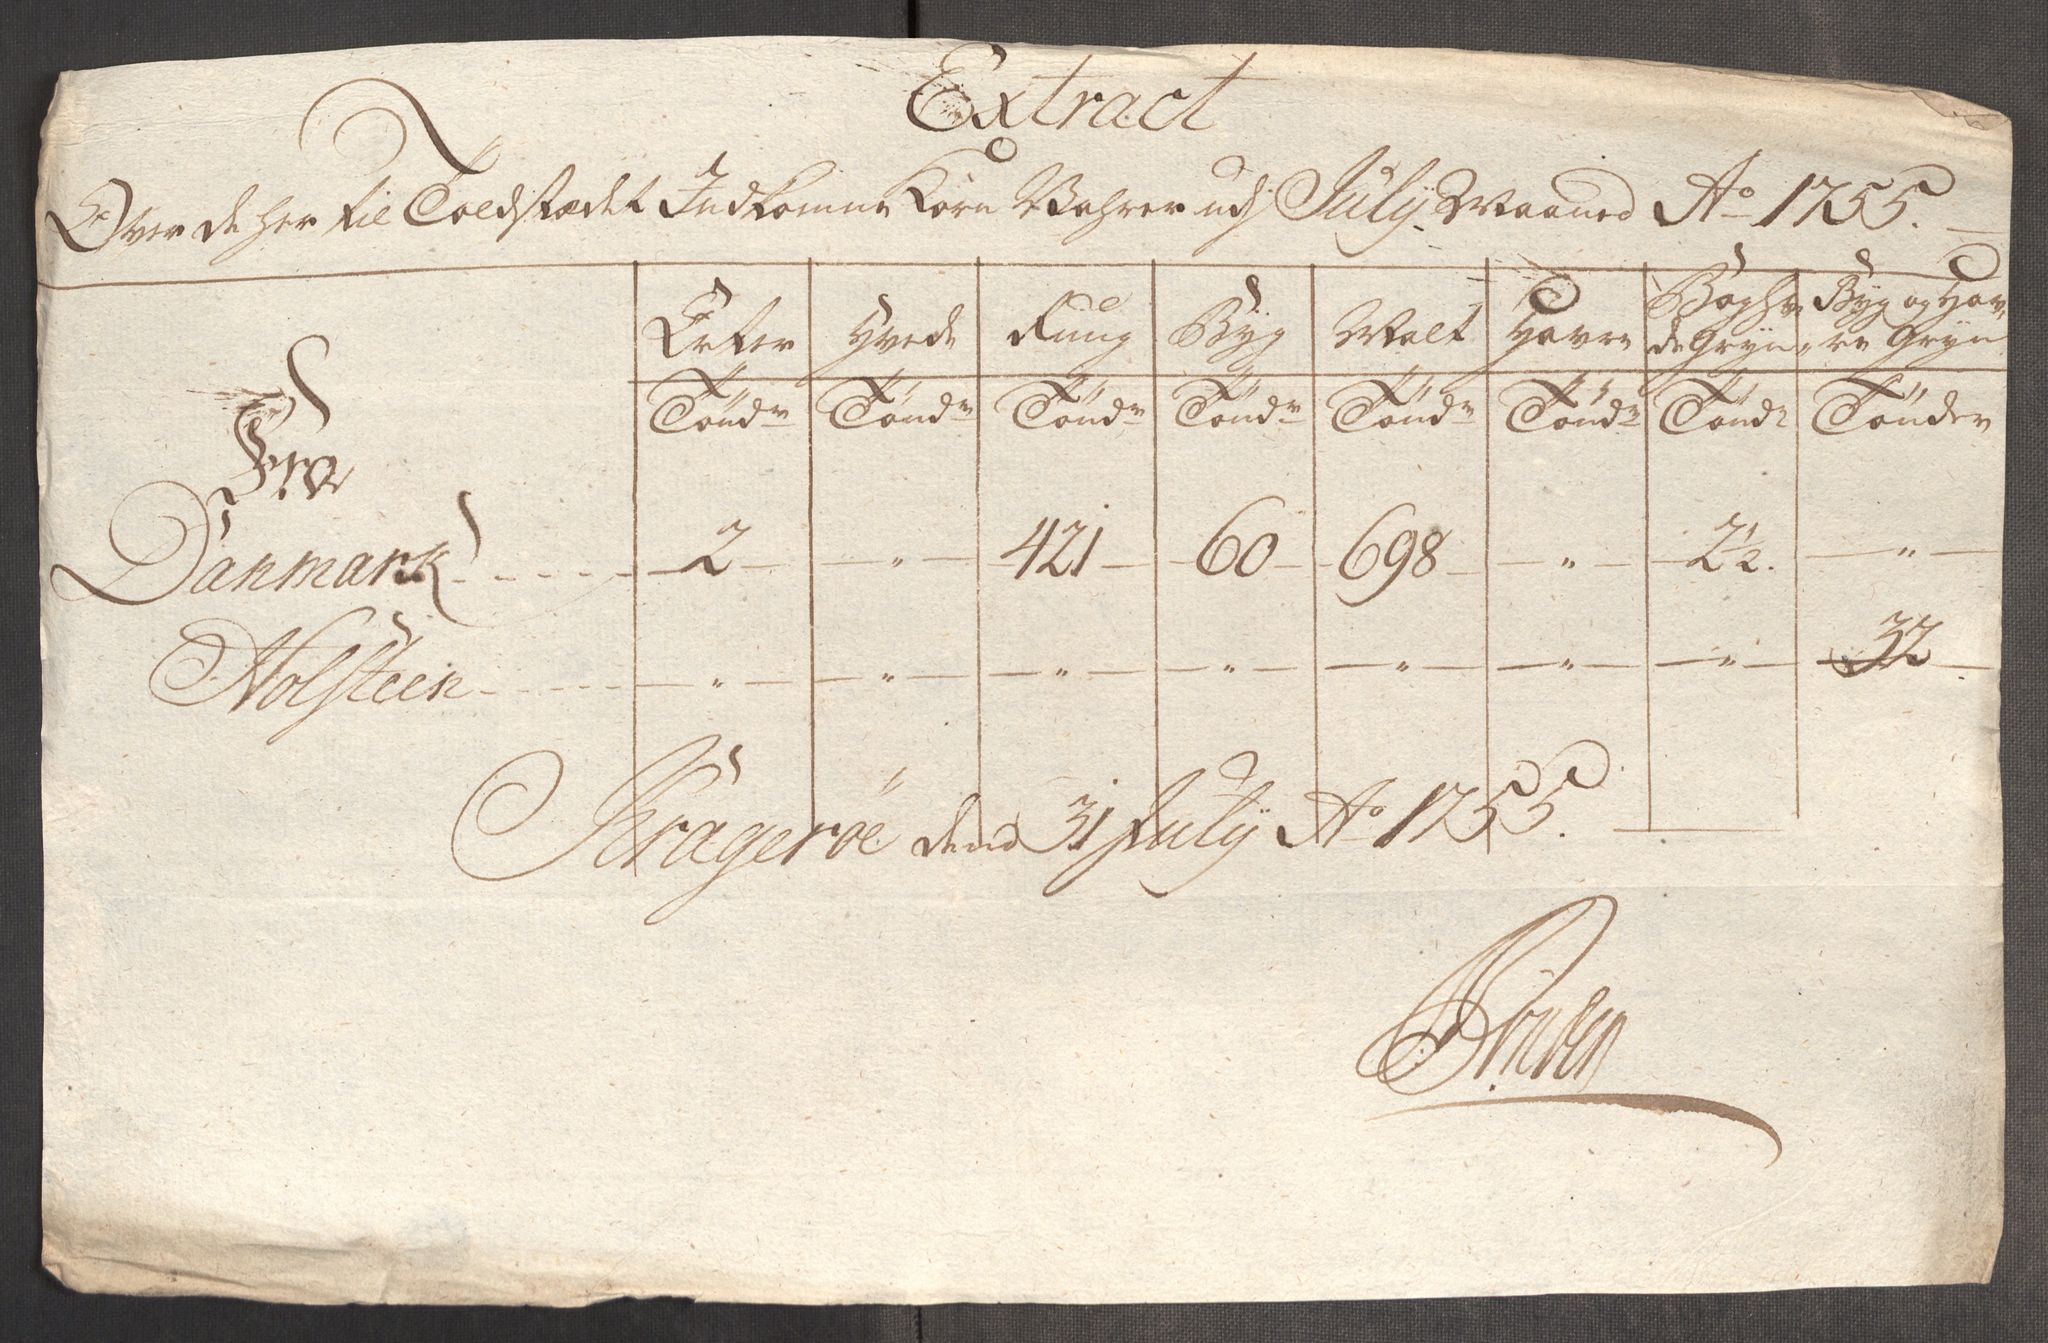 Extract
Over de her til Toldstædet Indkomne Korn Wahrer udj July Maaned Ao 1755.
Erter Hvede Rug Byg Malt Havre Boghve Byg og Hav
de Gryn re Gryn
Fra Töndr Töndr Töndr Töndr Töndr Tönd Tönd Tönder
Danmark 2 " 421 60 698 " 2 1/2. "
Holsteen " " " " " " " 32
Kragerøe dend 31 July Ao 1755.